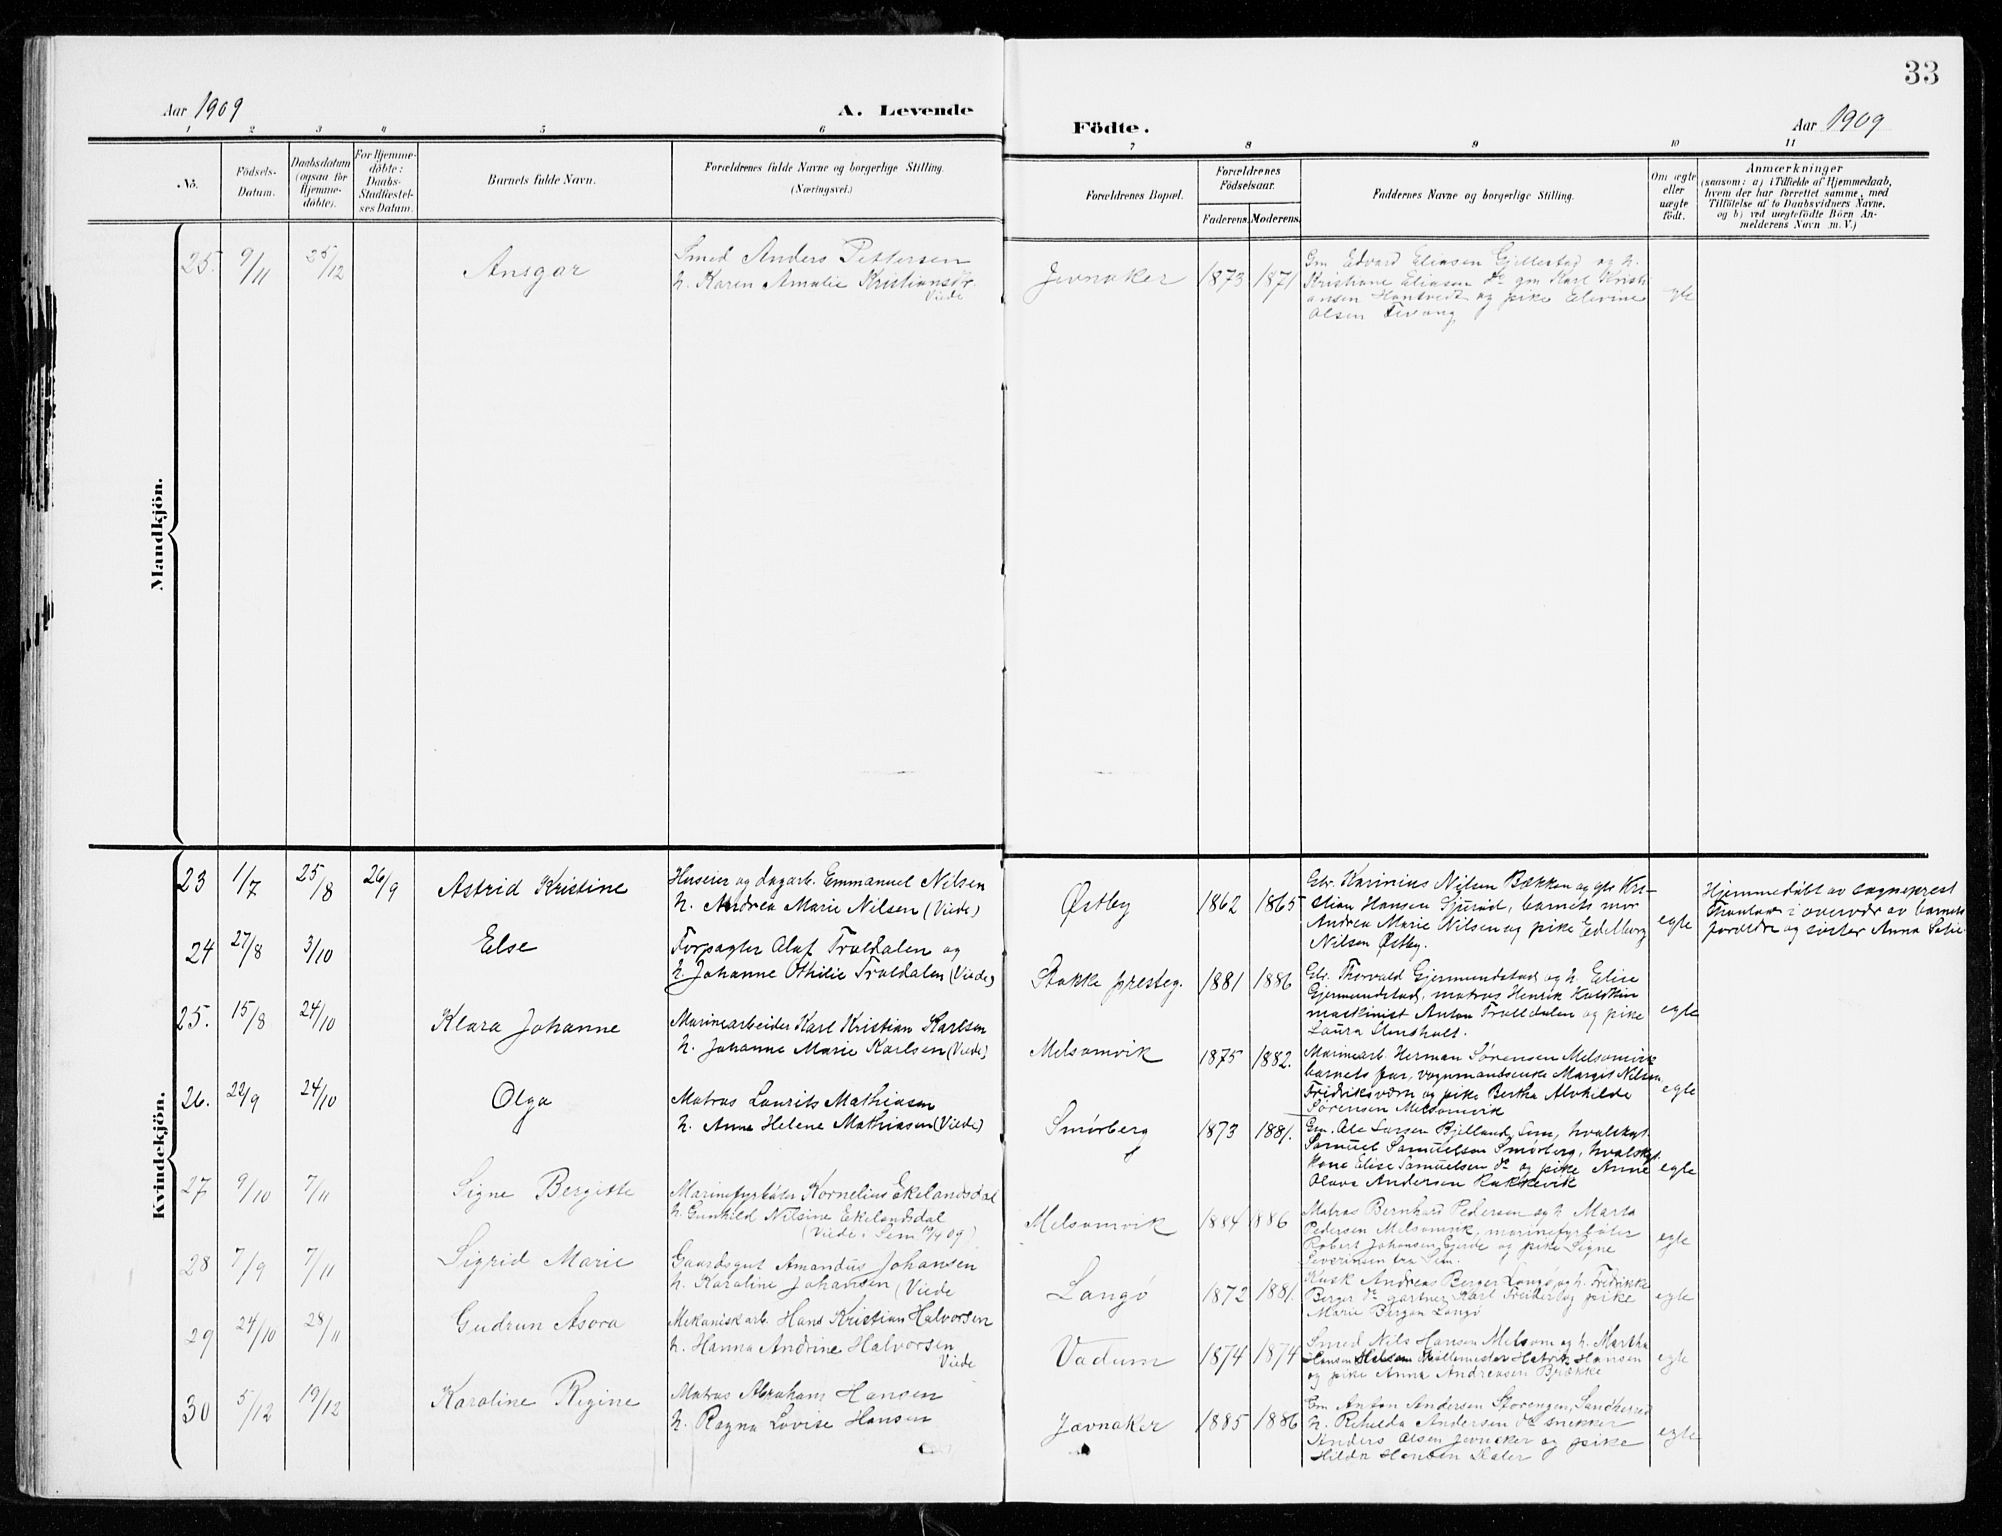 33
Aar 1909
A. Levende
Födte.
Aar 1909
1 2 3 4 5 6 7 8 9 10 11
No.
Födsels-
Datum.
Daabsdatum
(ogsaa for
Hjemme-
döbte).
For Hjemme-
döbte:
Daabs-
Stadfæstel-
ses Datum.
Barnets fulde Navn.
Forældrenes fulde Navne og borgerlige Stilling.
(Næringsvei.)
Forældrenes Bopæl.
Forældrenes
Födselsaar.
Faderens. Moderens.
Faddernes Navne og borgerlige Stilling.
Om ægte
eller
uægte
födt.
Anmærkninger
(saasom: a) i Tilfælde af Hjemmedaab,
hvem der har forrettet samme, med
Tilföielse af to Daabsvidners Navne,
og b) ved uægtefödte Börn An-
melderens Navn m. V.)
Mandkjön.
25. 9/11 25/12 Ansgar
Smed Anders Pettersen
h. Karen Amalie Kristiansdr.
Viede
Jovnaker 1873 1871
Gm Edvard Eliasen Gjellestad og h.
Kristiane Eliasen do gm Karl Kristi
ansen Hantvedt og pike Elevine
Olsen Tveang
egte
Kvindekjön.
23 1/7 25/8 26/9 Astrid Kristine
Huseier og dagarb. Emmanuel Nilsen
h. Andrea Marie Nilsen (Viede)
Østby 1862 1865
Gbr. Karinius Nilsen Bækken og gbr Kri-
stian Hansen Sjuerød, barnets mor
Andrea Marie Nilsen og pike Edelborg
Nilsen Østby.
egte
Hjemmedøbt av sogneprest
i overvær av barnets
forældre og søster Anna
24 27/8 3/10 Else
Forpagter Olaf Troldalen og
h. Johanne Othilie Troldalen (Viede)
Stokke presteg. 1881 1886
Gbr. Thorvald Gjermundstad og h. Elise
Gjermundstad, matros Henrik
maskinist Anton Trolldalen og pike
Laura
egte
25. 15/8 24/10 Klara Johanne
Marinearbeider Karl Kristian Karlsen
h. Johanne Marie Karlsen (Viede)
Melsomvik 1875 1882.
Marinearb. Herman Sørensen Melsomvik
barnets far, vognmandsenke Margit Nilsen
Fredriksværn og pike Bertha Alvhilde
Sørensen Melsomvik
egte
26. 22/9 24/10 Olga
Matros Laurits Mathiasen
h. Anna Helene Mathiasen (Viede)
Smørberg 1873 1881.
Gm. Ole Larsen Bjelland, Sem, hvalskyt.
Samuel Samuelsen Smørberg, hvalskyt.
kone Elise Samuelsen do og pike Anne
Olava Andersen Rakkevik
egte
27 9/10 7/11 Signe Bergitte
Marinefyrbøter Kornelius Ekelandsdal
h. Gunhild Nilsine Ekelandsdal
(Viede i Sem
Melsomvik 1884 1886
Matros Bernhard Pedersen og h Marta
Pedersen Melsomvik, marinefyrbøter
Robert Johansen Gjerde og pike Signe
Severinsen fra Sem.
egte
28 7/9 7/11 Sigrid Marie
Gaardsgut Amandus Johansen
h. Karoline Johansen (Viede
Langø 1872 1881.
Kusk Andreas Berger Langø og h. Fredrikke
Berger do gartner Karl og pike
Marie Bergan Langø
egte
29 24/10 28/11 Gudrun Asora
Mekanisk arb. Hans Kristian Halvorsen
h. Hanna Andrine Halvorsen
Viede
Vadum 1874 1874
Smed Nils Hansen Melsom og h. Martha
Hansen Melsom Møllemester Hansen
og pike Anna Andreasen Brække
egte
30 5/12 19/12 Karoline Regine
Matros Abraham Hansen
h. Ragna Lovise Hansen
Jovnaker 1885 1886
Gm Anton Andersen Storengen, Sandeherred
h. Andersen do snekker
Anders Olsen Jovnaker og pike
Hilda Hansen
egte